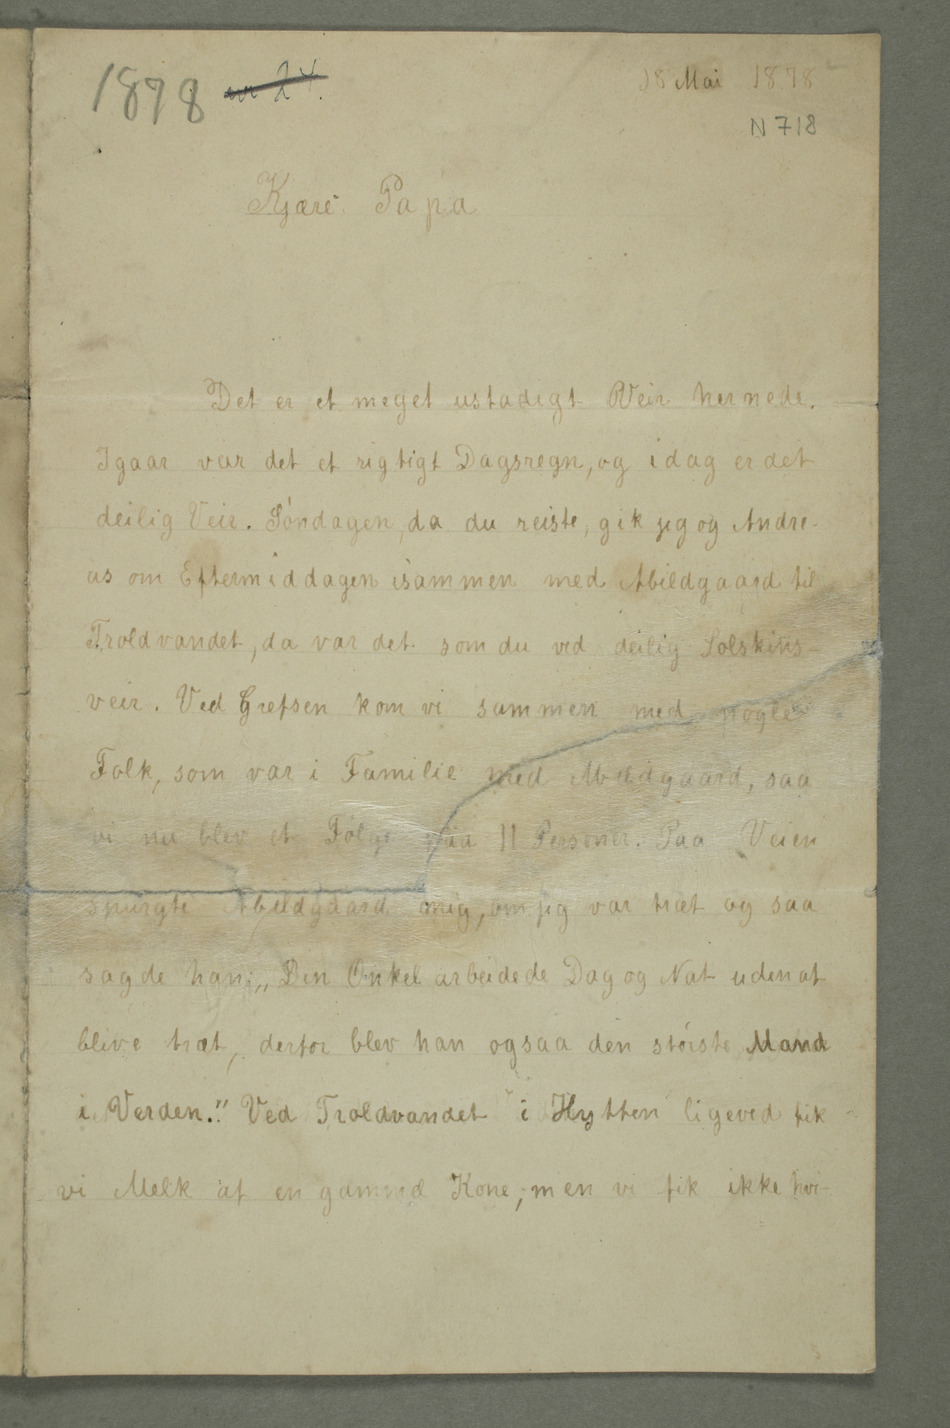 1878
18 Mai 1878
N 718
Kjære Papa
Det er et meget ustadigt Veir hernede.
Igaar var det et rigtigt Dagsregn, og idag er det
deilig Veir. Söndagen, da du reiste, gik jeg og Andre-
as om Eftermiddagen isammen med Abildgaard til
Troldvandet, da var det som du ved deilig Solskins-
veir. Ved Grefsen kom vi sammen med nogle
Folk, som var i Familie med Abildgaard, saa
vi nu blev et Følge paa 11 Personer. Paa Veien
spurgte Abildgaard mig, om jeg var træt og saa
sagde han: „Din Onkel arbeidede Dag og Nat uden at
blive træt, derfor blev han ogsaa den störste Mand
i Verden." Ved Troldvandet i Hytten ligeved fik
vi Melk af en gammel Kone, men vi fik ikke hvi-